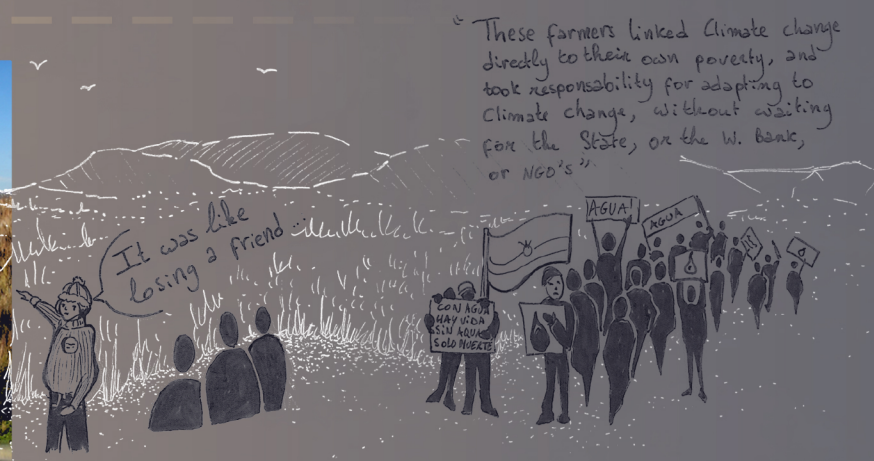 "These farmers linked Climate change
directly to their own poverty, and
took responsability for adapting to
Climate change, without waiting
for the State, or the W. Bank,
or NGO's"
It was like
losing a friend...
AGUA!
AGUA
CON AGUA
HAY VIDA
SIN AQUA
SOLO MUERTE